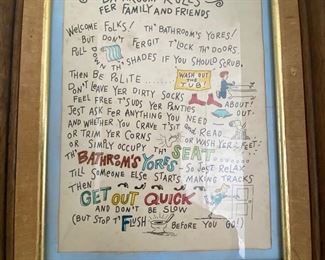 BATHROOM RULES
FER FAMILY AND FRIENDS
WELCOME FOLKS! TH' BATHROOM'S YORES!
BUT DON'T FERGIT T'LOCK TH' DOORS.
PULL DOWN TH' SHADES IF YOU SHOULD SCRUB,
THEN BE POLITE..... WASH OUT THE TUB!
DON'T LEAVE YER DIRTY SOCKS ABOUT!
FEEL FREE T'SUDS YER PANTIES OUT.
JEST ASK FER ANYTHING YOU NEED
AND WHETHER YOU CRAVE T'SIT AND READ
OR TRIM YER CORNS OR WASH YER FEET.
OR SIMPLY OCCUPY TH' SEAT....
TH' BATHR'M'S YORES – SO JEST RELAX
TILL SOMEONE ELSE STARTS MAKING TRACKS
THEN
GET OUT QUICK
AND DON'T BE SLOW
(BUT STOP T'FLUSH BEFORE YOU GO!)